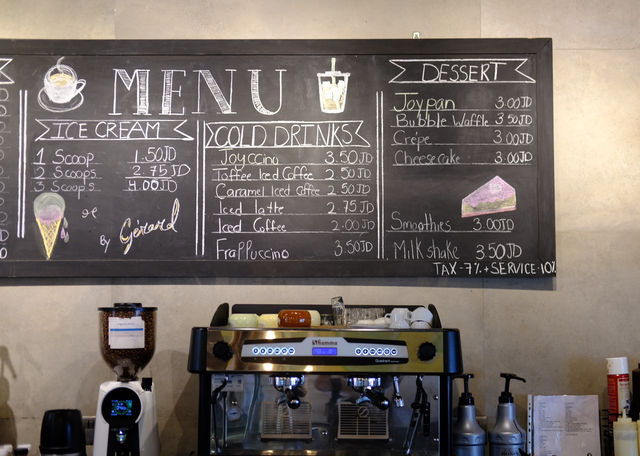 MENU
ICE CREAM
1 Scoop 1.50JD
2 Scoops 2.75JD
3 Scoop's 4.00JD
By Gérard
COLD DRINKS
Joyccino 3.50JD
Toffee Iced Coffee 2.50JD
Caramel Iced Coffee 2.50JD
Iced latte 2.75JD
Iced Coffee 2.00JD
Frappuccino 3.50JD
DESSERT
Joypan 3.00JD
Bubble Waffle 3.50JD
Crêpe 3.00JD
Cheesecake 3.00JD
Smoothies 3.00JD
Milkshake 3.50JD
TAX-7%+SERVICE-10%
fiamma